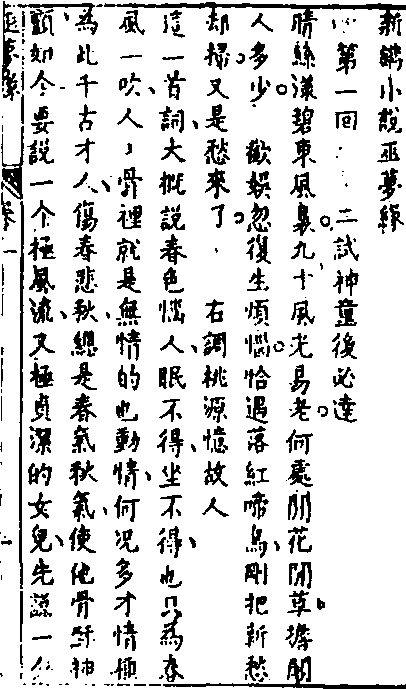 新鐫小說巫夢緣
第一回　二試神童後必達
晴絲漾碧東風裊九十風光易老何處閒花閒草擔閣
人多少　歡娛忽復生煩惱恰過落紅啼鳥剛把新愁
却掃又是愁來了　右調桃源憶故人
這一首詞大概說春色惱人眠不得坐不得也只為春
風一吹人人骨裡就是無情的也動情何況多才情種
為此千古才人傷春悲秋總是春氣秋氣使他骨酥神
顫如今要說一个極風流又極貞潔的女兒先說一个
巫夢緣　卷一